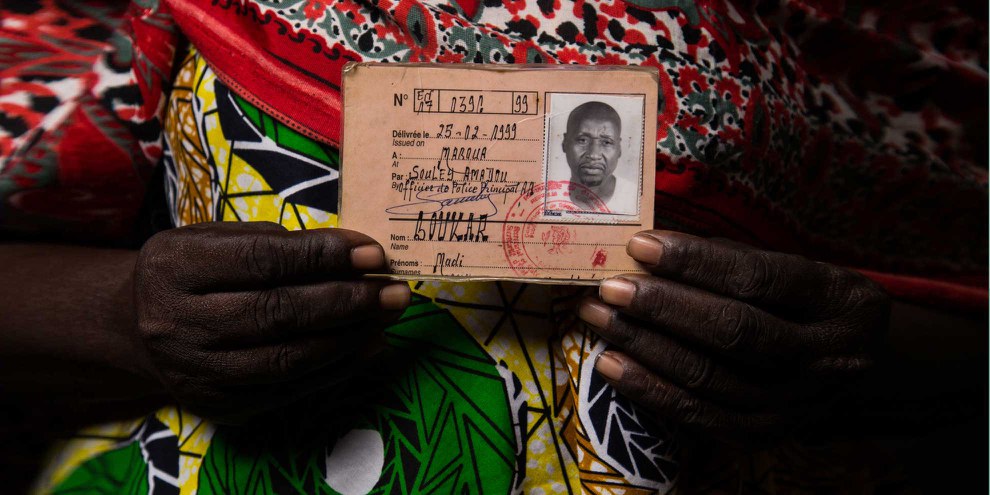 N° 99
Délivrée le 25-02-1999
Issued on
A : MAROUA
At
Par : SOULEY AMADOU
By Officier de Police Principal
Nom : BOUKAR
Name
Prénoms : Madi
Surnames